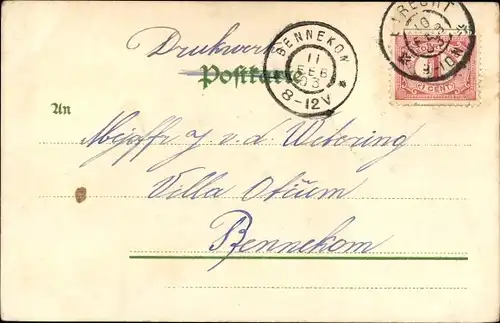 Drukwerk
Postkarte
BENNEKOM
11
FEB
03
8-12V
UTRECHT
10
FEB
1 CENT
An
Mejuffr J v. d. Wetering
Villa Otium
Bennekom